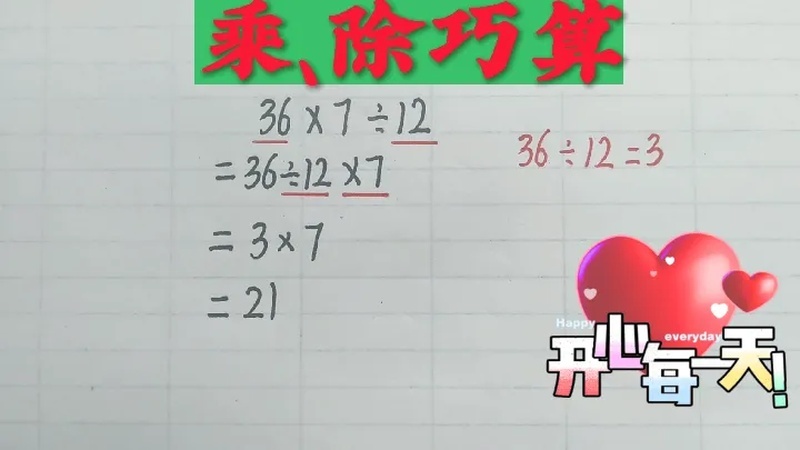 乘、除巧算
36×7÷12
=36÷12×7
36÷12=3
=3×7
=21
Happy
everyday
开心每一天!